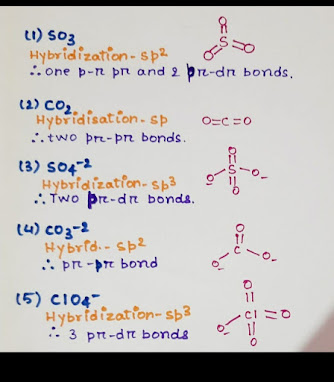 (1) SO3
Hybridization - sp2
∴ one p-π pπ and 2 pπ-dπ bonds.
O
S
O O
(2) CO2
Hybridisation - sp
O=C=O
∴ two pπ-pπ bonds.
(3) SO4-2
Hybridization - sp3
∴ Two pπ-dπ bonds.
O
O- S O-
O
(4) CO3-2
Hybrid.. - sp2
∴ pπ-pπ bond
O
C
O- O-
(5) ClO4-
Hybridization - sp3
∴ 3 pπ-dπ bonds
O
-O Cl=O
O